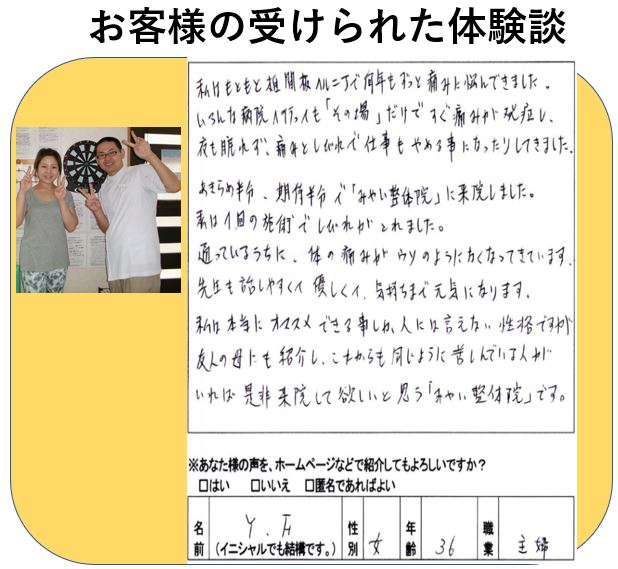 お客様の受けられた体験談
私はもともと椎間板ヘルニアで何年もずっと痛みに悩んできました。
いろんな病院に行っても「その場」だけですぐ痛みが発症し、
夜も眠れず、痛みとしびれで仕事もやめる事になったりしてきました。
あきらめ半分、期待半分で「みやい整体院」に来院しました。
私は1回の施術でしびれがとれました。
通っているうちに、体の痛みがウソのようになくなってきています。
先生も話しやすくて優しくて、気持ちまで元気になります。
私は本当にオススメできる事しか、人には言えない性格ですが
友人の母にも紹介し、これからも同じように苦しんでいる人が
いれば是非来院して欲しいと思う「みやい整体院」です。
※あなた様の声を、ホームページなどで紹介してもよろしいですか？
□はい □いいえ □匿名であればよい
名前 Y.H (イニシャルでも結構です。) 性別 女 年齢 36 職業 主婦